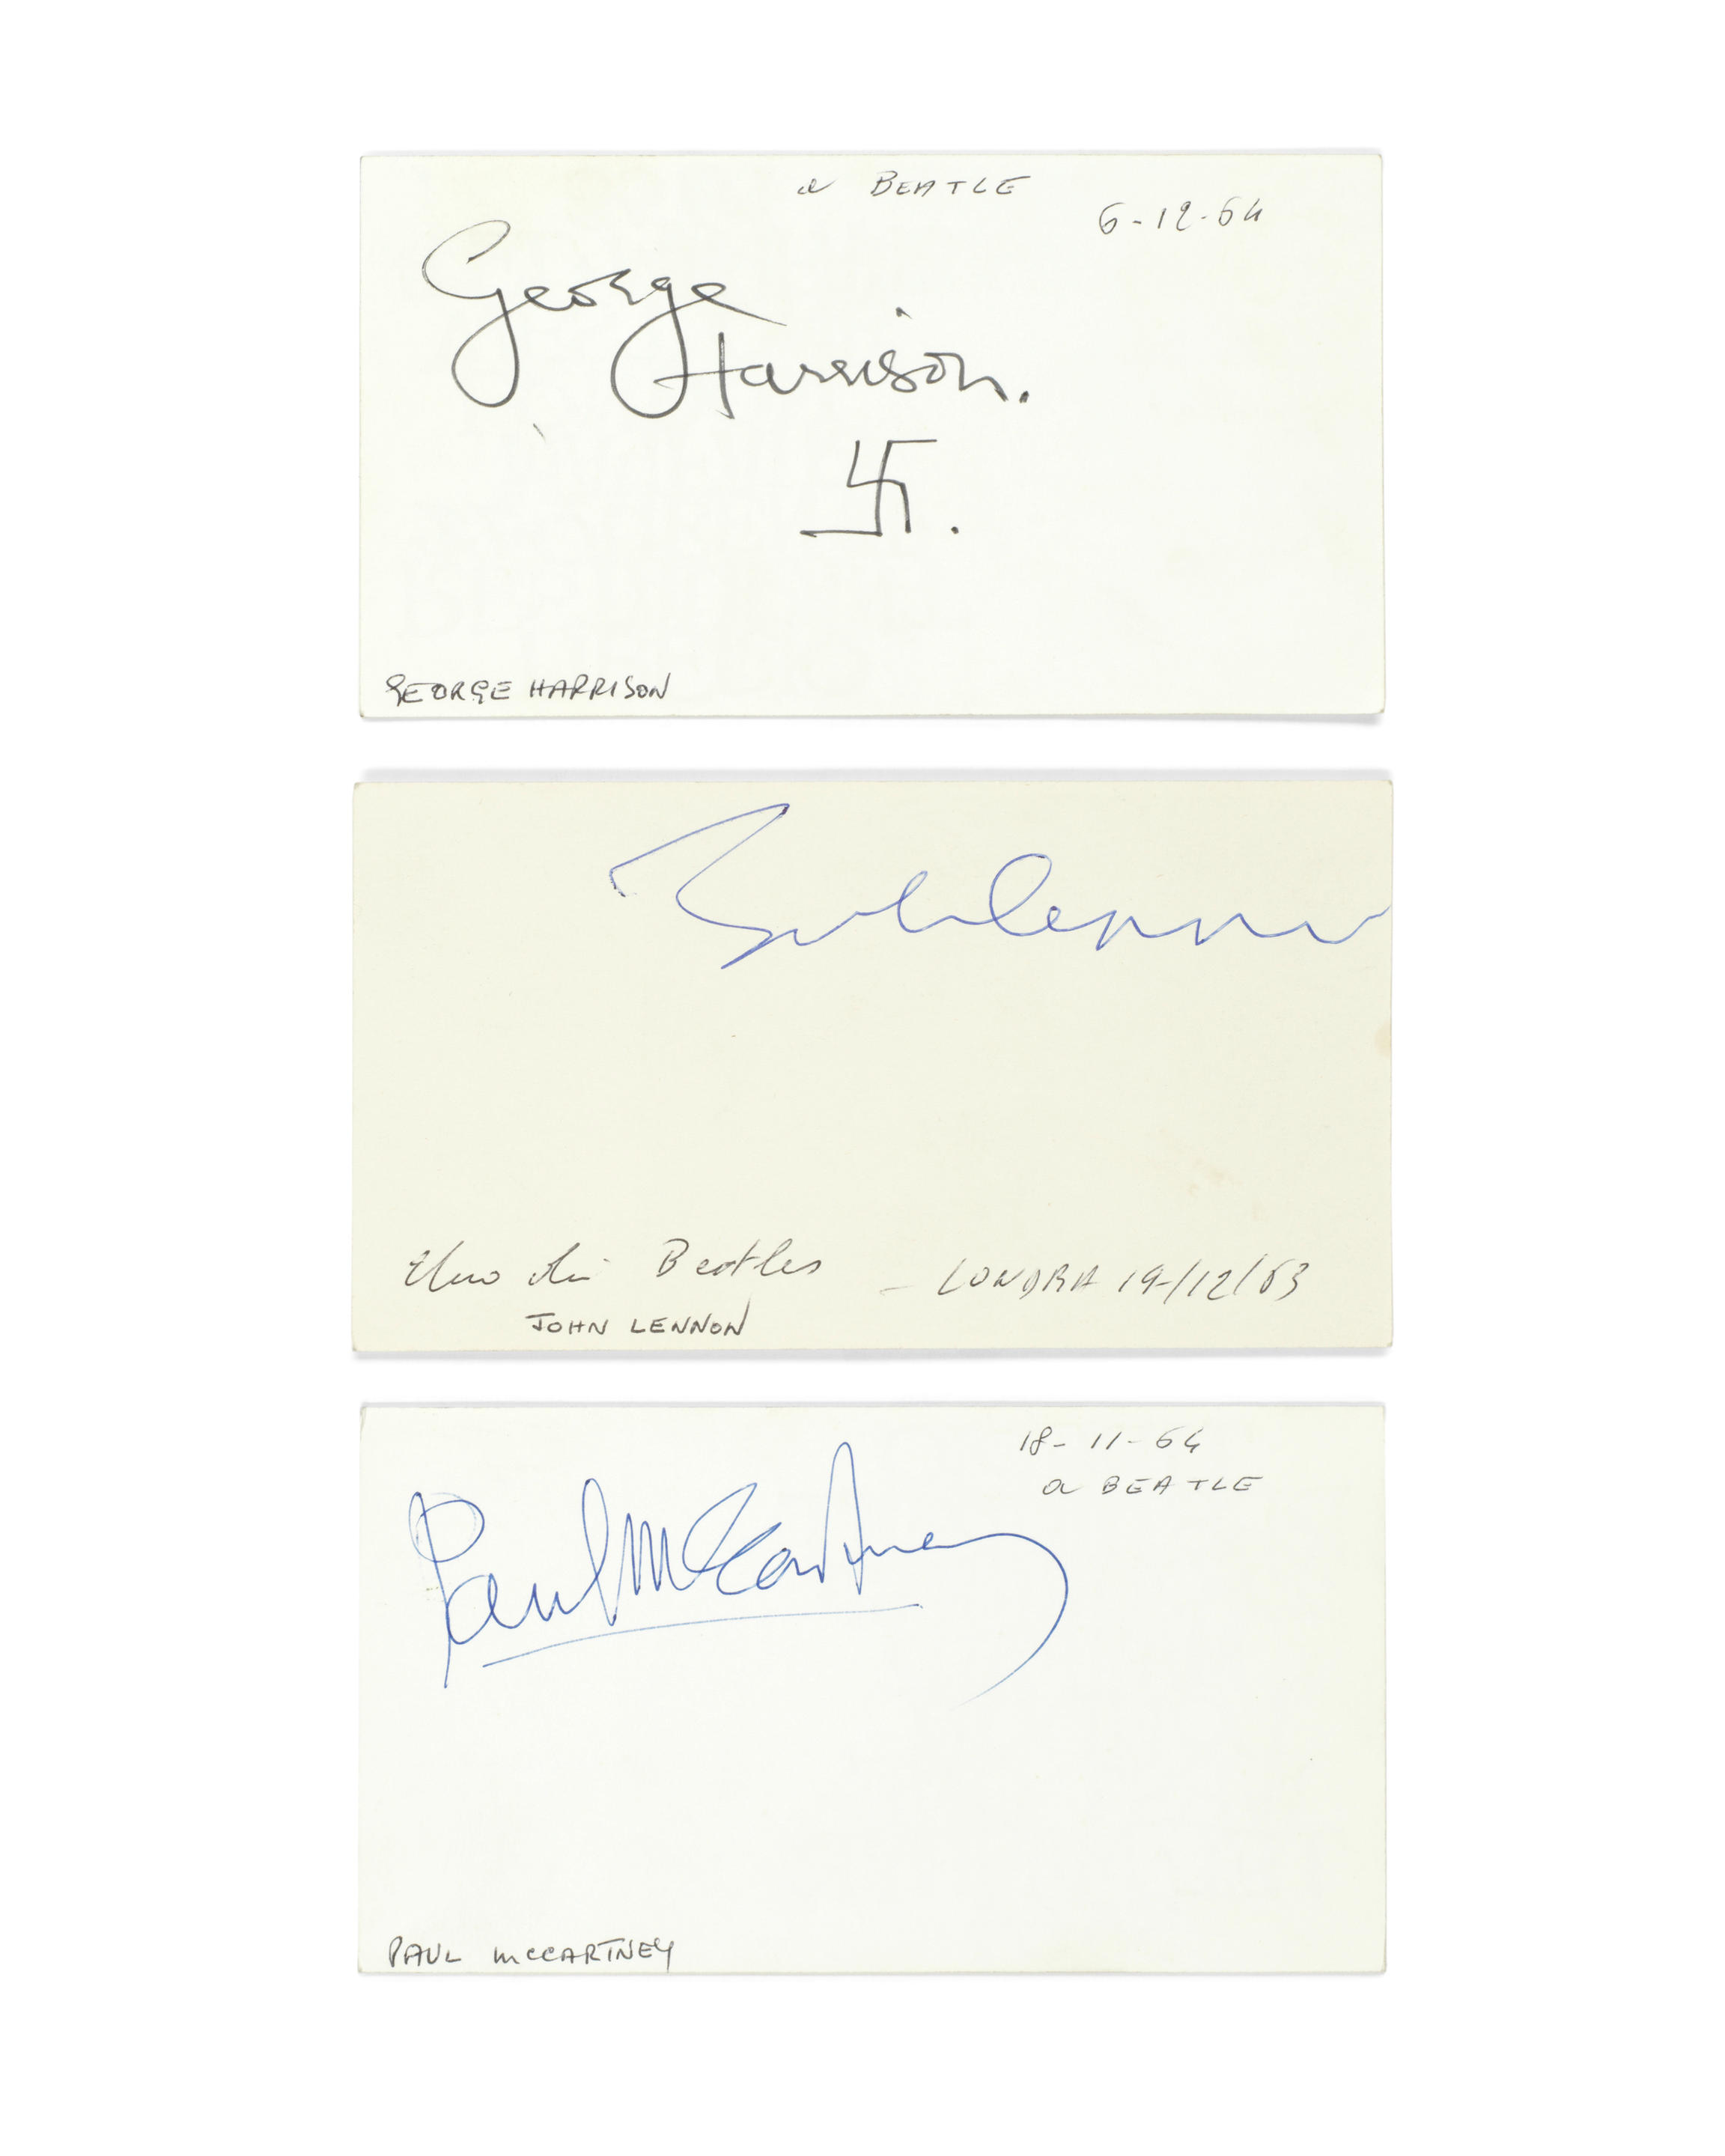 a BEATLE
6-12-64
George
Harrison.
GEORGE HARRISON
John Lennon
Uno dei Beatles - LONDRA 19/12/63
JOHN LENNON
18-11-64
a BEATLE
Paul McCartney
PAUL McCARTNEY